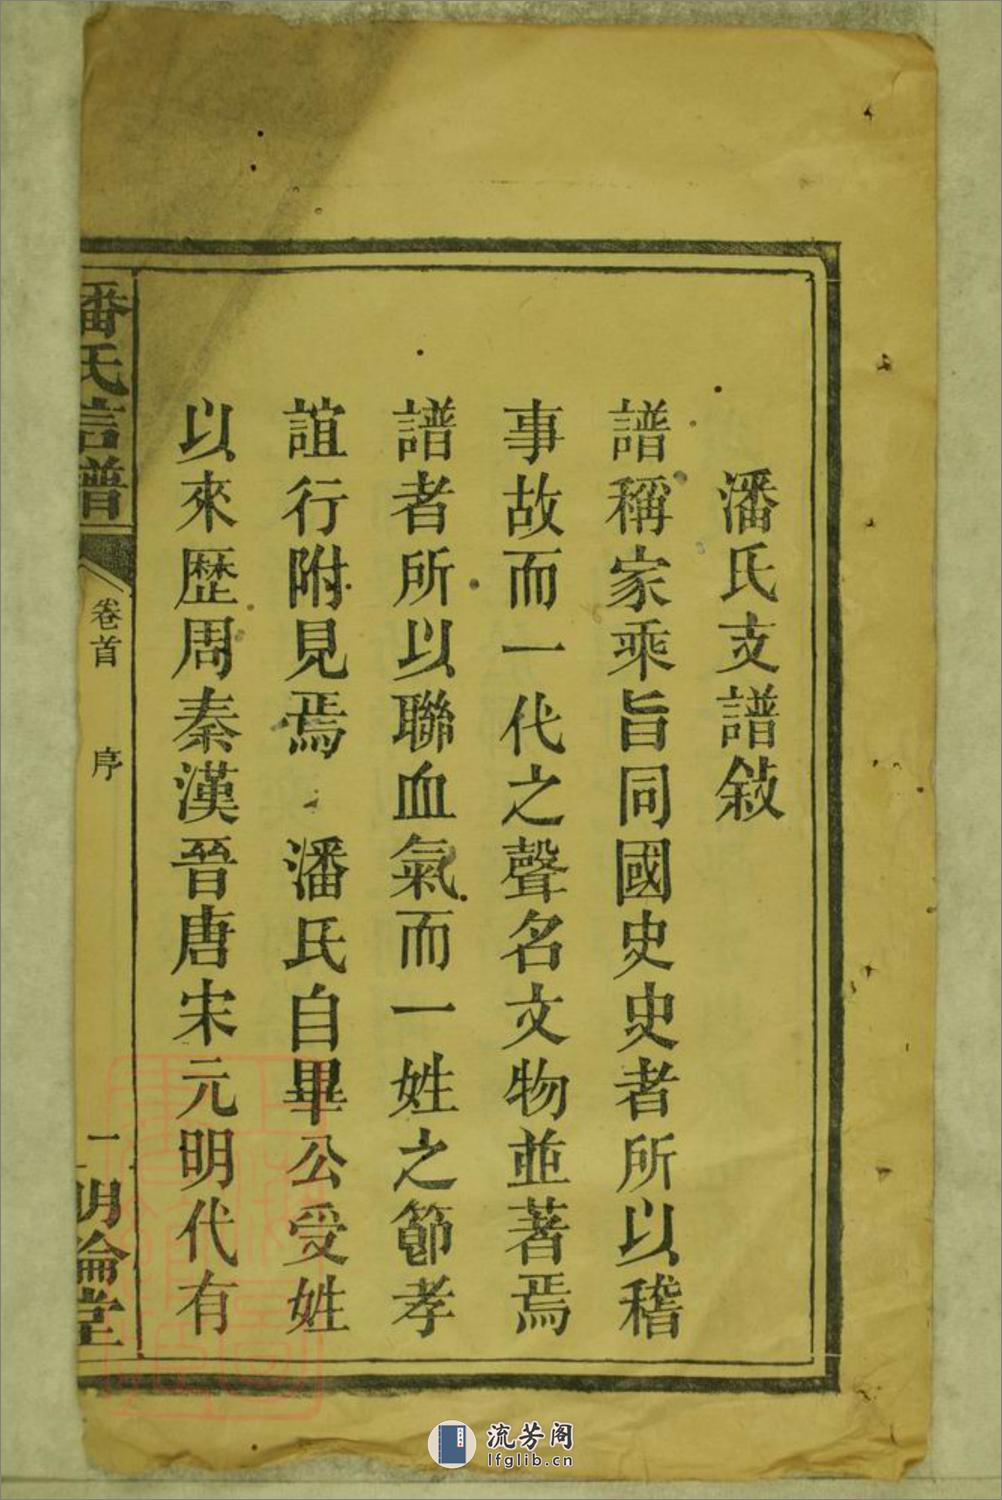 潘氏支譜敘
譜稱家乘旨同國史史者所以稽
事故而一代之聲名文物並著焉
譜者所以聯血氣而一姓之節孝
誼行附見焉 潘氏自畢公受姓
以來歴周秦漢晉唐宋元明代有
潘氏宗譜
卷首 序
一
明倫堂
流芳阁
lfglib.cn